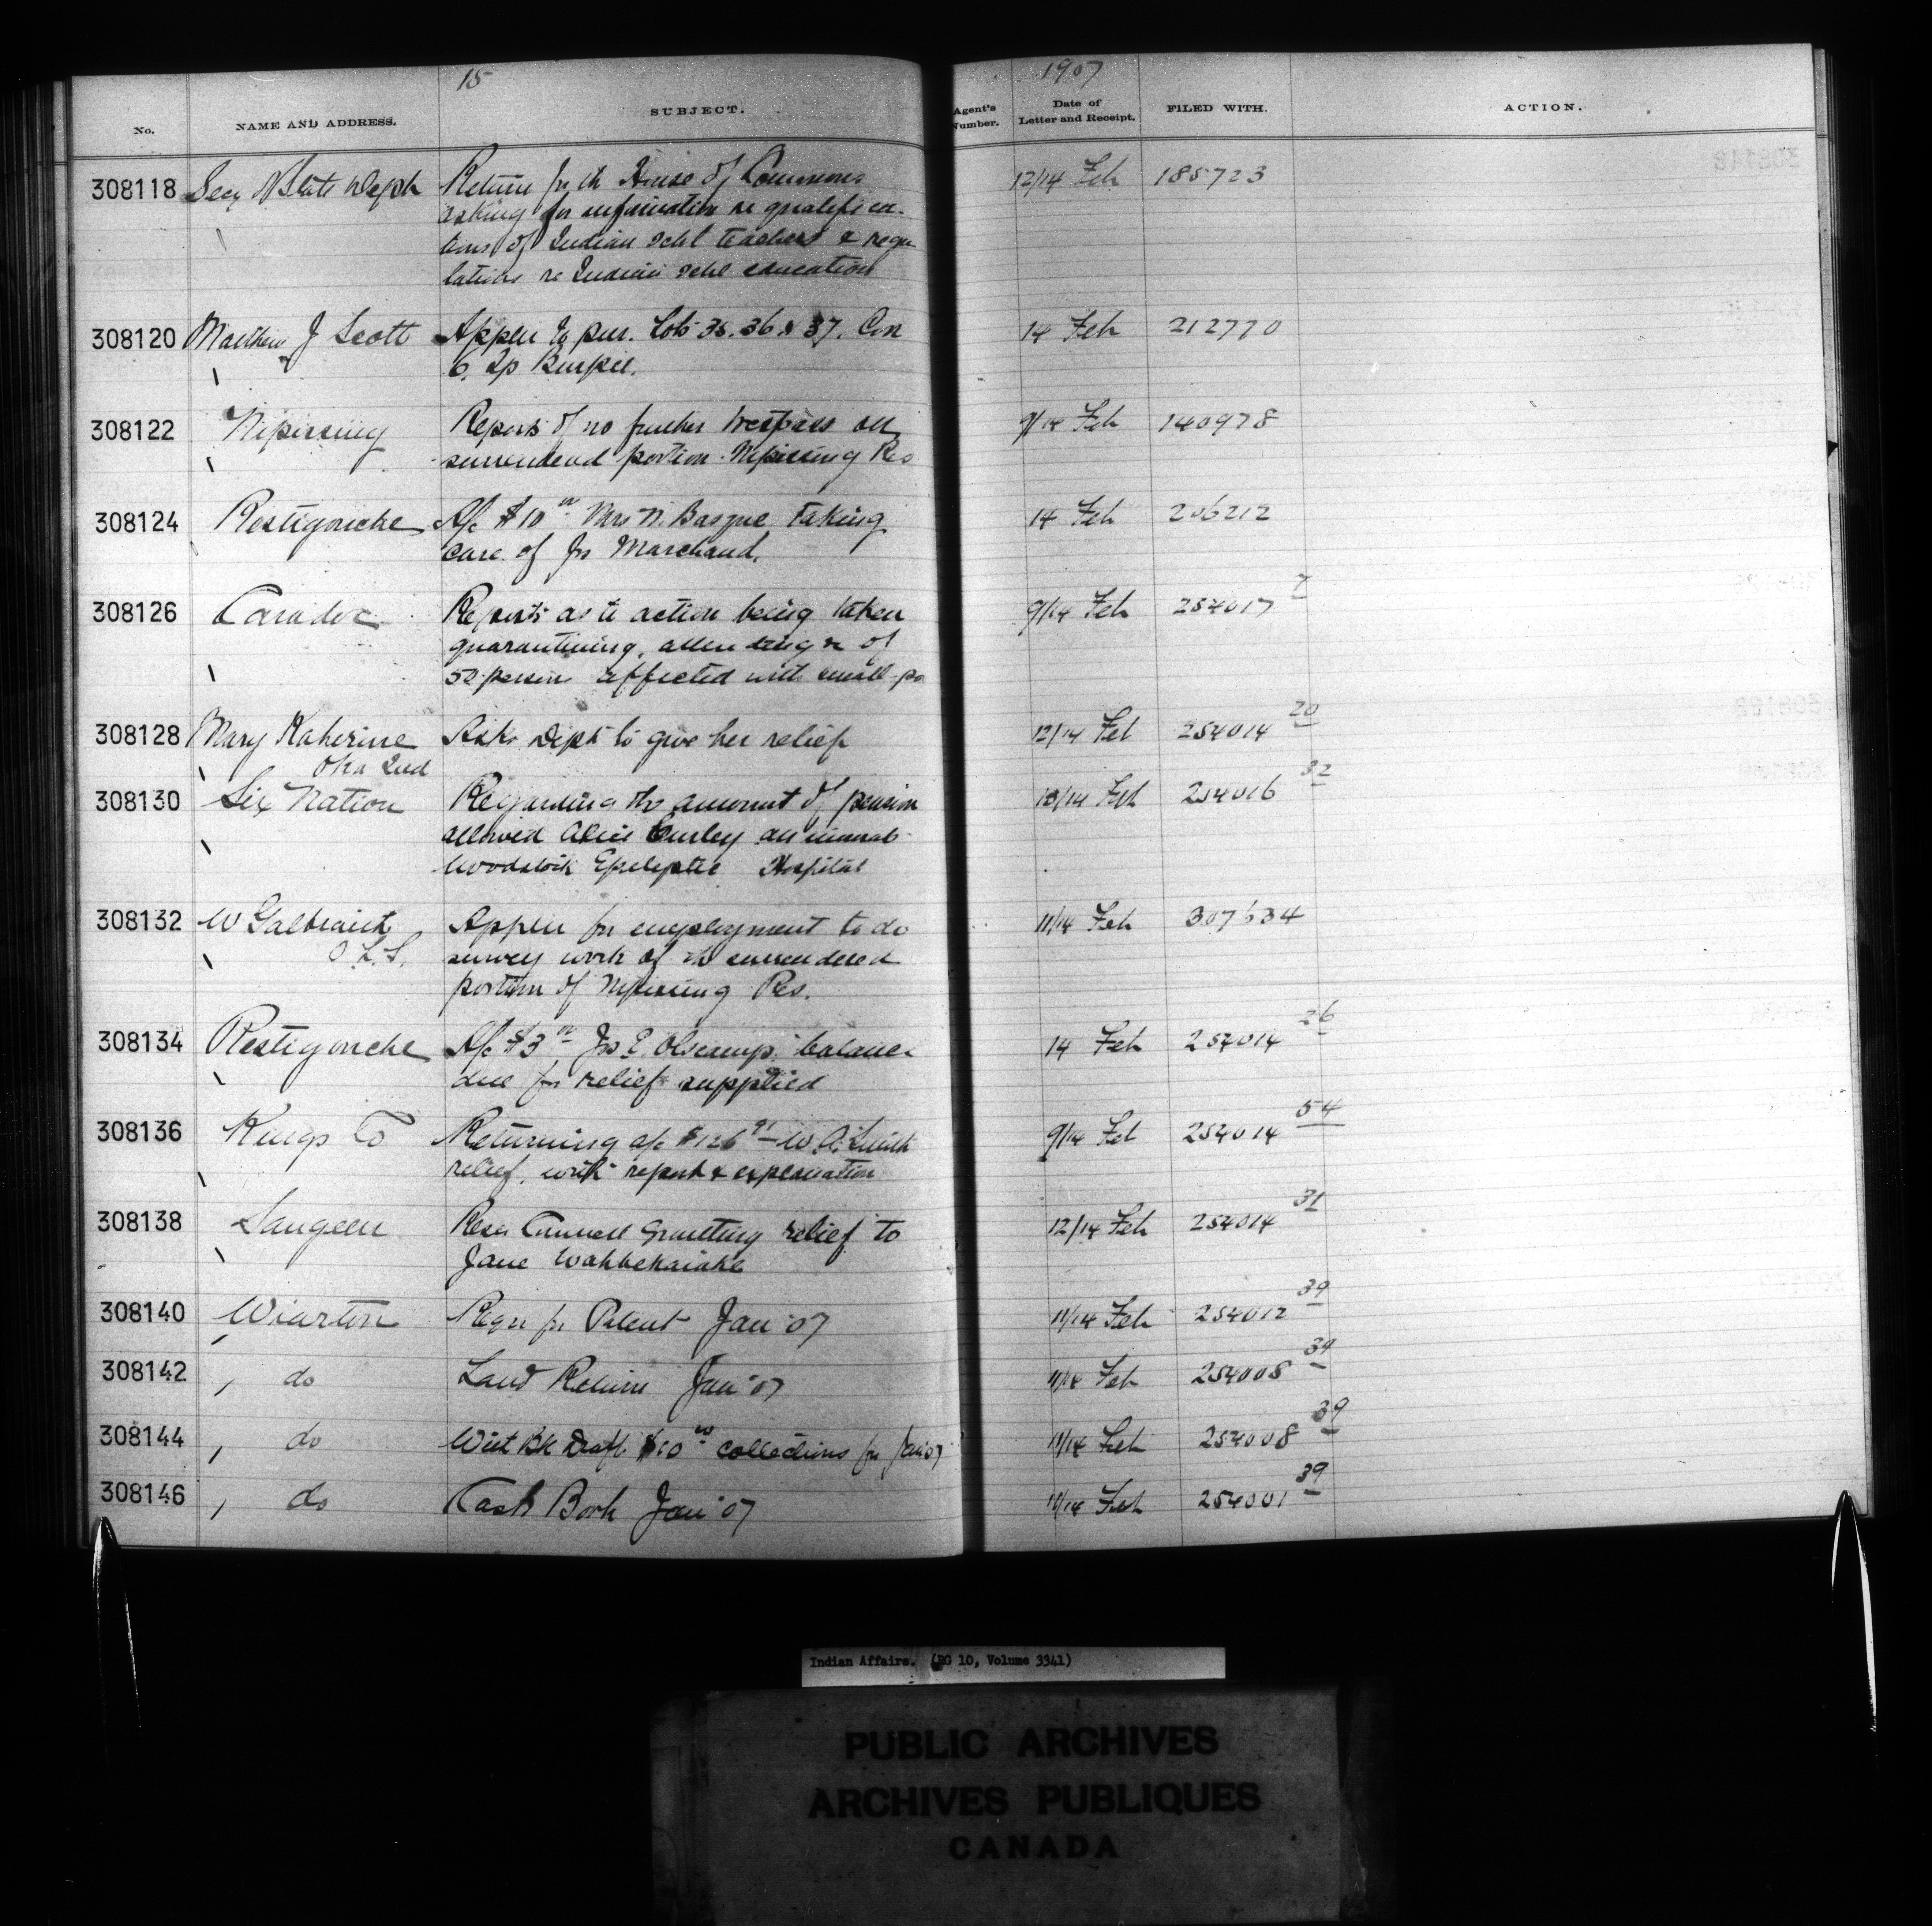 15
1907
No. NAME AND ADDRESS. SUBJECT. Agent's Number. Date of Letter and Receipt. FILED WITH. ACTION.
308118 Secy of State Dept Return for the House of Commons 12/14 Feb 185723
asking for information re qualifica-
tions of Indian schl teachers & regu
lations re Indian schl education
308120 Matthew J Scott Applen to pur. Lots 35.36 & 37. Con 14 Feb 212770
6, Tp Burpee.
308122 Nipissing Reports of no further trespass on 9/14 Feb 140978
surrendered portion Nipissing Res
308124 Restigouche A/c $10 00 Mrs N. Basque taking 14 Feb 206212
care of Jos Marchand.
308126 Caradoc Reports as to action being taken 9/14 Feb 254017 7
quarantining, attending & of
52 persons affected with small-po
308128 Mary Katherine Asks Dept to give her relief 12/14 Feb 254014 20
Oka Ind
308130 Six Nation Regarding the amount of pension 13/14 Feb 254016 32
allowed Alice Curley an inmate
Woodstock Epileptic Hospital
308132 W Galbraith Applen for employment to do 11/14 Feb 307634
O.L.S. survey work of the surrendered
portion of Nipissing Res.
308134 Restigouche A/c $3 00 Jos E. Olscamp balance 14 Feb 254014 26
due for relief supplied
308136 Kings Co Returning a/c $126 91 W.A. Smith 9/14 Feb 254014 54
relief, with report & explanation
308138 Saugeen Resn Council granting relief to 12/14 Feb 254014 31
Jane Wahbekaiake
308140 Wiarton Requ for Patent Jan '07 11/14 Feb 254012 39
308142 " do Land Return Jan '07 11/14 Feb 254008 39
308144 " do West Bk Draft $10 00 collections for Jan 07 11/14 Feb 254008 39
308146 " do Cash Book Jan '07 11/14 Feb 254001 39
Indian Affairs. (RG 10, Volume 3341)
PUBLIC ARCHIVES
ARCHIVES PUBLIQUES
CANADA